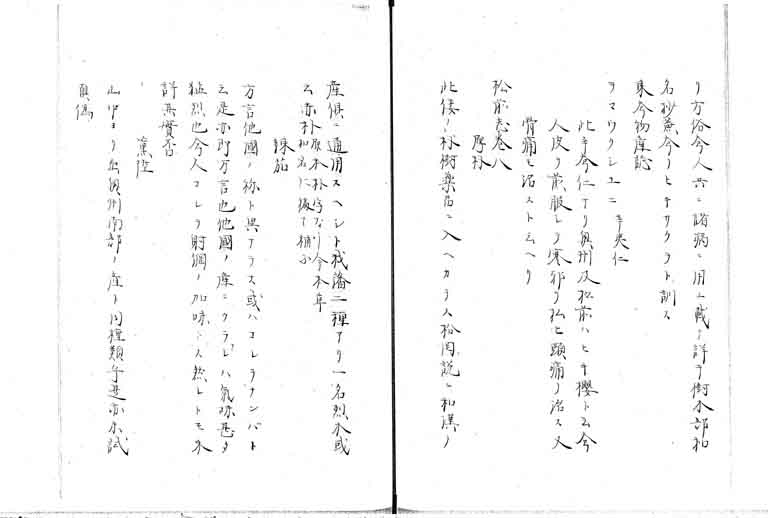 リ方俗今人共ニ諸病ニ用ユ載テ詳ヲ樹木部和
名抄兼今ノヒキサクラト訓ス
東今物産誌
ヲマウクシユニ 辛夷仁
此辛今仁アリ奥州及松前ハヒキ櫻ト云今
人皮ヲ煎服シテ寒邪ヲ払ヒ頭痛ヲ治ス又
骨痛ヲ治スト云ヘリ
松前志巻八
厚朴
此倭ノ朴樹薬品ニ入ヘカラス松岡説ニ和漢ノ
産倶ニ通用スヘシト我藩二種アリ一名烈朴或
云赤朴
厚木朴字ナリ今本草
和名ニ據テ補フ
辣茄
方言他國ノ称ト異アラス或ハコレヲナンバト
云是亦即方言也他國ノ産ニクラレハ氣味甚タ
猛烈也今人コレヲ射綱ノ加味トス然レトモ未
詳其實否
薫陸
山中ヨリ出奥州南部ノ産ト同種類乎是亦未試
眞偽